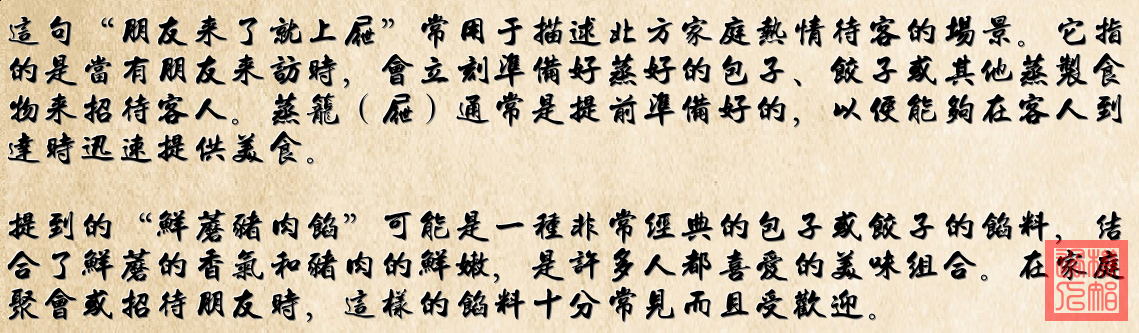 這句“朋友來了就上屜”常用于描述北方家庭熱情待客的場景。它指
的是當有朋友來訪時，會立刻準備好蒸好的包子、餃子或其他蒸製食
物來招待客人。蒸籠（屜）通常是提前準備好的，以便能夠在客人到
達時迅速提供美食。
提到的“鮮蘑豬肉餡”可能是一種非常經典的包子或餃子的餡料，結
合了鮮蘑的香氣和豬肉的鮮嫩，是許多人都喜愛的美味組合。在家庭
聚會或招待朋友時，這樣的餡料十分常見而且受歡迎。